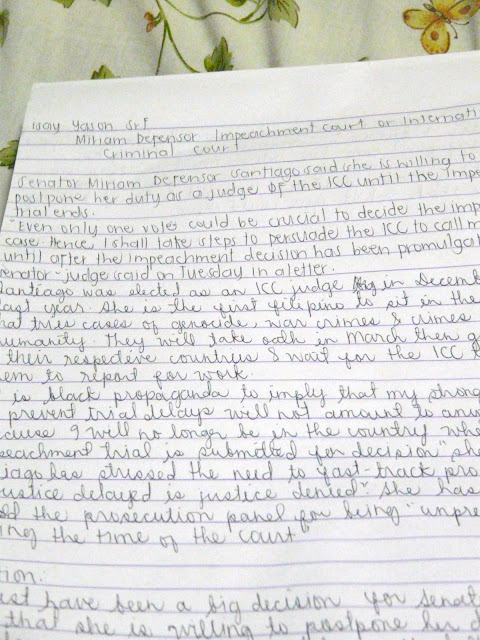 isay Yason Srf
Miriam Defensor Impeachment court or Internati
Criminal court
Senator Miriam Defensor Santiago said she is willing to
postpone her duty as a judge of the ICC until the impe
trial ends.
"Even only one vote could be crucial to decide the imp
case. Hence, I shall take steps to persuade the ICC to call m
until after the impeachment decision has been promulgat
senator-judge said on Tuesday in a letter.
Santiago was elected as an ICC judge in Decemb
last year. She is the first filipino to sit in the
hat tries cases of genocide, war crimes & crimes
humanity. They will take oath in March then g
their respective countries & wait for the ICC t
em to report for work.
is black propaganda to imply that my strong
prevent trial delays will not amount to anu
cuse I will no longer be in the country whe
peachment trial is submitted for decision" sh
iago has stressed the need to fast-track pro
ustice delayed is justice denied". She has
ed the prosecution panel for being "unpre
ing the time of the court"
tion:
ust have been a big decision for senat
that she is willing to postpone her d